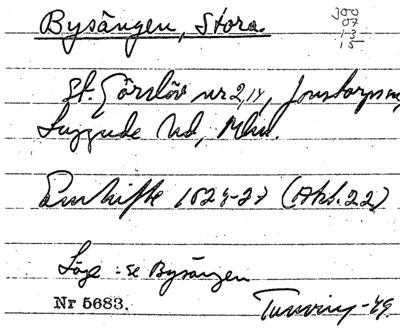 Bysängen, Stora.
300
07
13
15
St. Görslöv nr 2,14, Jonstorps
Luggude hd, Mlm.
Enskifte 1824-27 (Akt. 22)
Läge: se Bysången
Nr 5683.
-49.